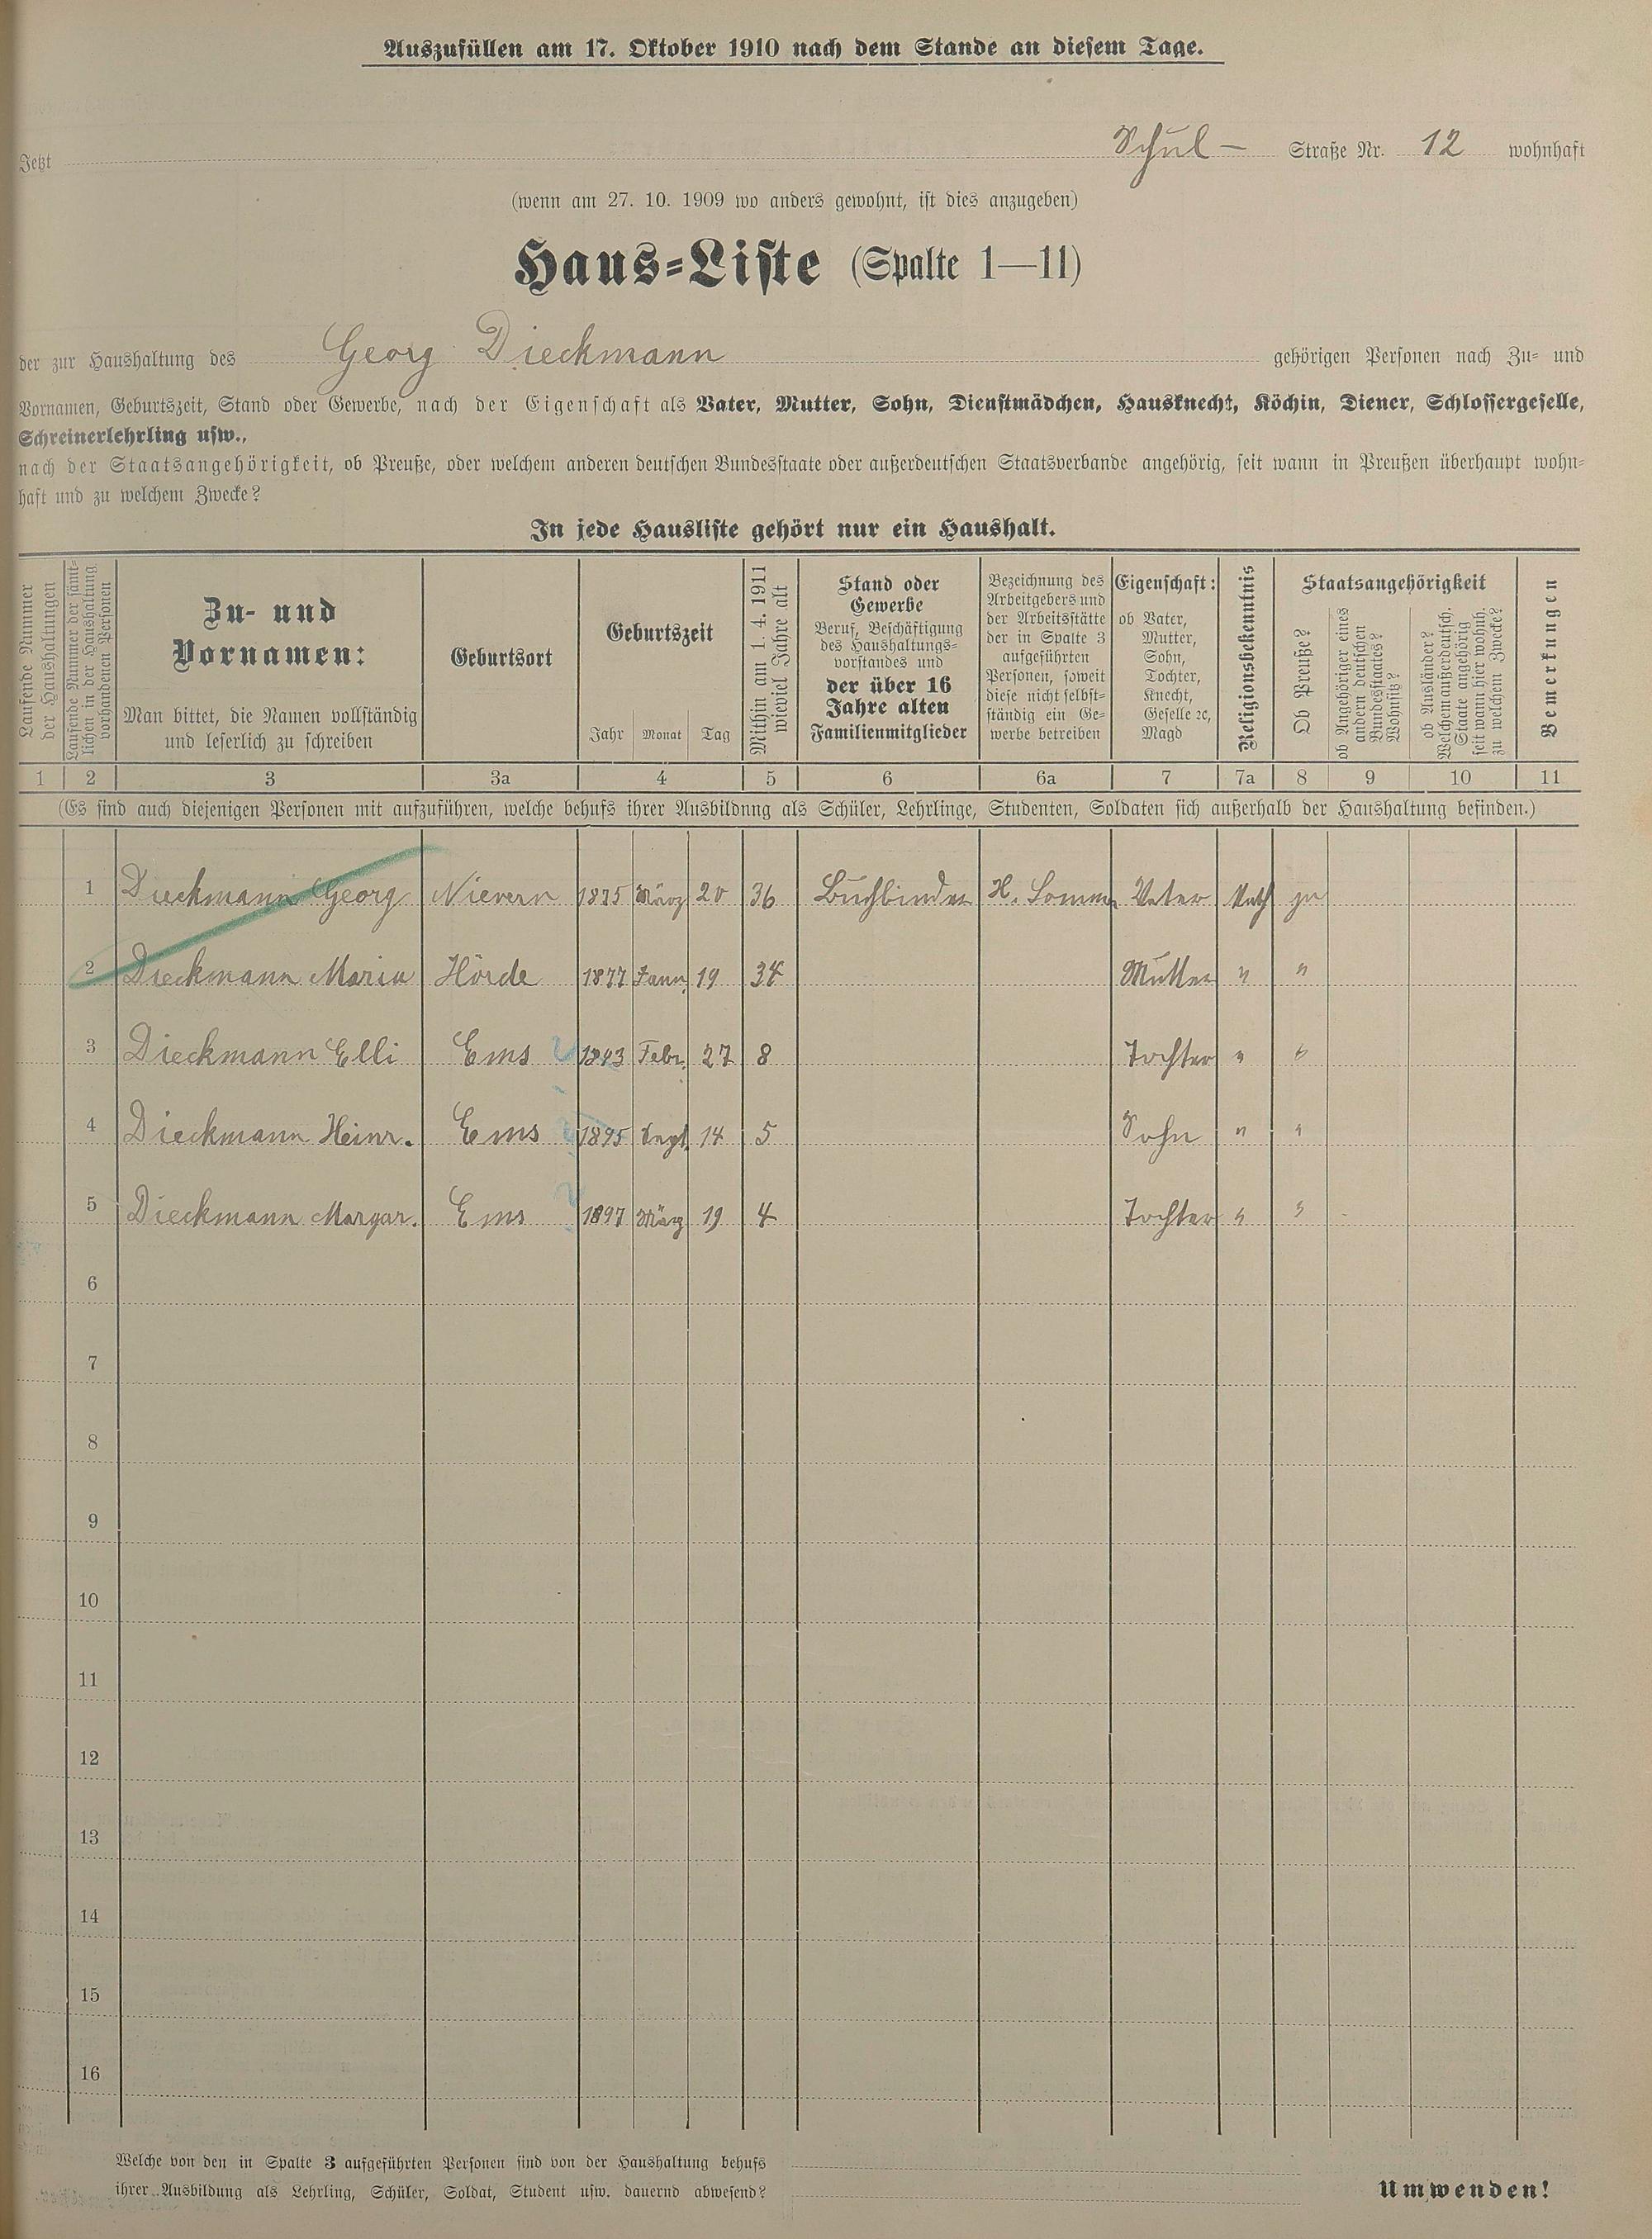 Auszufüllen am 17. Oktober 1910 nach dem Stande an diesem Tage.
Jetzt Schul- Straße Nr. 12 wohnhaft
(wenn am 27. 10. 1909 wo anders gewohnt, ist dies anzugeben)
Haus-Liste (Spalte 1—11)
der zur Haushaltung des Georg Dieckmann gehörigen Personen nach Zu- und
Vornamen, Geburtszeit, Stand oder Gewerbe, nach der Eigenschaft als Vater, Mutter, Sohn, Dienstmädchen, Hausknecht, Köchin, Diener, Schlossergeselle,
Schreinerlehrling usw.,
nach der Staatsangehörigkeit, ob Preuße, oder welchem anderen deutschen Bundesstaate oder außerdeutschen Staatsverbande angehörig, seit wann in Preußen überhaupt wohn-
haft und zu welchem Zwecke?
In jede Hausliste gehört nur ein Haushalt.
Laufende Nummer
der Haushaltungen
Laufende Nummer der sämt-
lichen in der Haushaltung
vorhandenen Personen
Zu- und
Vornamen:
Man bittet, die Namen vollständig
und leserlich zu schreiben
Geburtsort
Geburtszeit
Jahr Monat Tag
Mithin am 1. 4. 1911
wieviel Jahre alt
Stand oder
Gewerbe
Beruf, Beschäftigung
des Haushaltungs-
vorstandes und
der über 16
Jahre alten
Familienmitglieder
Bezeichnung des
Arbeitgebers und
der Arbeitsstätte
der in Spalte 3
aufgeführten
Personen, soweit
diese nicht selbst-
ständig ein Ge-
werbe betreiben
Eigenschaft:
ob Vater,
Mutter,
Sohn,
Tochter,
Knecht,
Geselle ec,
Magd
Religionsbekenntnis
Staatsangehörigkeit
Ob Preuße?
ob Angehöriger eines
andern deutschen
Bundesstaates?
Wohnsitz?
ob Ausländer?
Welchem außerdeutsch.
Staate angehörig
seit wann hier wohnh.
zu welchem Zwecke?
Bemerkungen
1 2 3 3a 4 5 6 6a 7 7a 8 9 10 11
(Es sind auch diejenigen Personen mit aufzuführen, welche behufs ihrer Ausbildung als Schüler, Lehrlinge, Studenten, Soldaten sich außerhalb der Haushaltung befinden.)
1 Dieckmann Georg Nievern 1875 März 20 36 Buchbinder H. Sommer Vater Kath ja
2 Dieckmann Maria Hörde 1877 Jann. 19 34 Mutter " "
3 Dieckmann Elli Ems Febr. 27 8 Tochter " "
4 Dieckmann Heinr. Ems 1895 Sept. 14 5 Sohn " "
5 Dieckmann Margar. Ems 1897 März 19 4 Tochter " "
6
7
8
9
10
11
12
13
14
15
16
Welche von den in Spalte 3 aufgeführten Personen sind von der Haushaltung behufs
ihrer Ausbildung als Lehrling, Schüler, Soldat, Student usw. dauernd abwesend?
Umwenden!